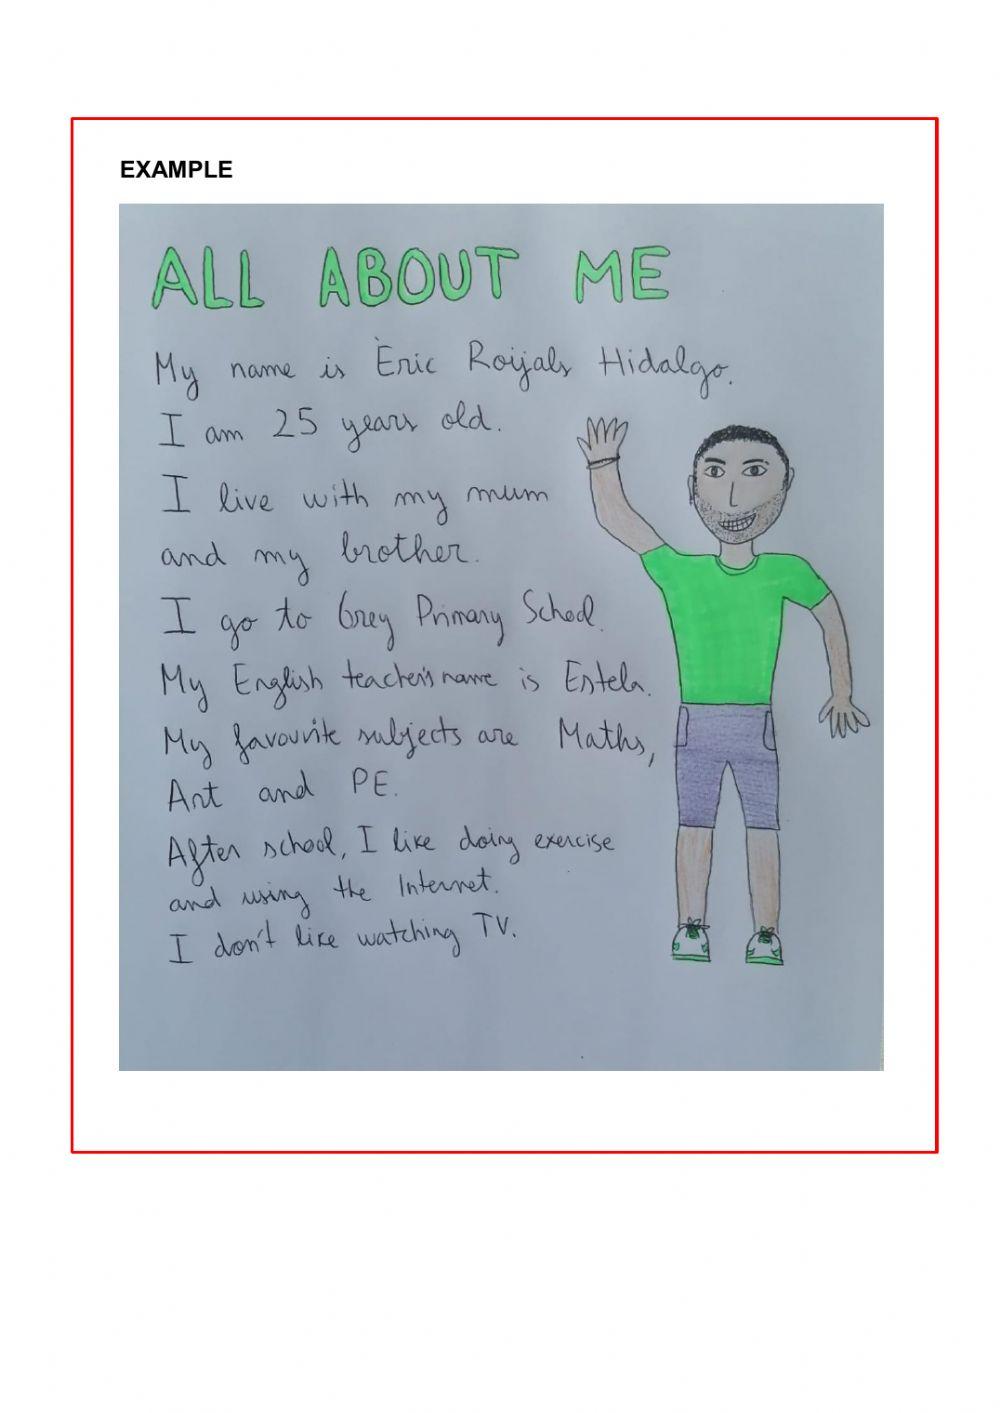 EXAMPLE
ALL ABOUT ME
My name is Èric Roijals Hidalgo.
I am 25 years old.
I live with my mum
and my brother.
I go to Grey Primary School.
My English teacher's name is Estela.
My favourite subjects are Maths,
Art and PE.
After school, I like doing exercise
and using the Internet.
I don't like watching TV.